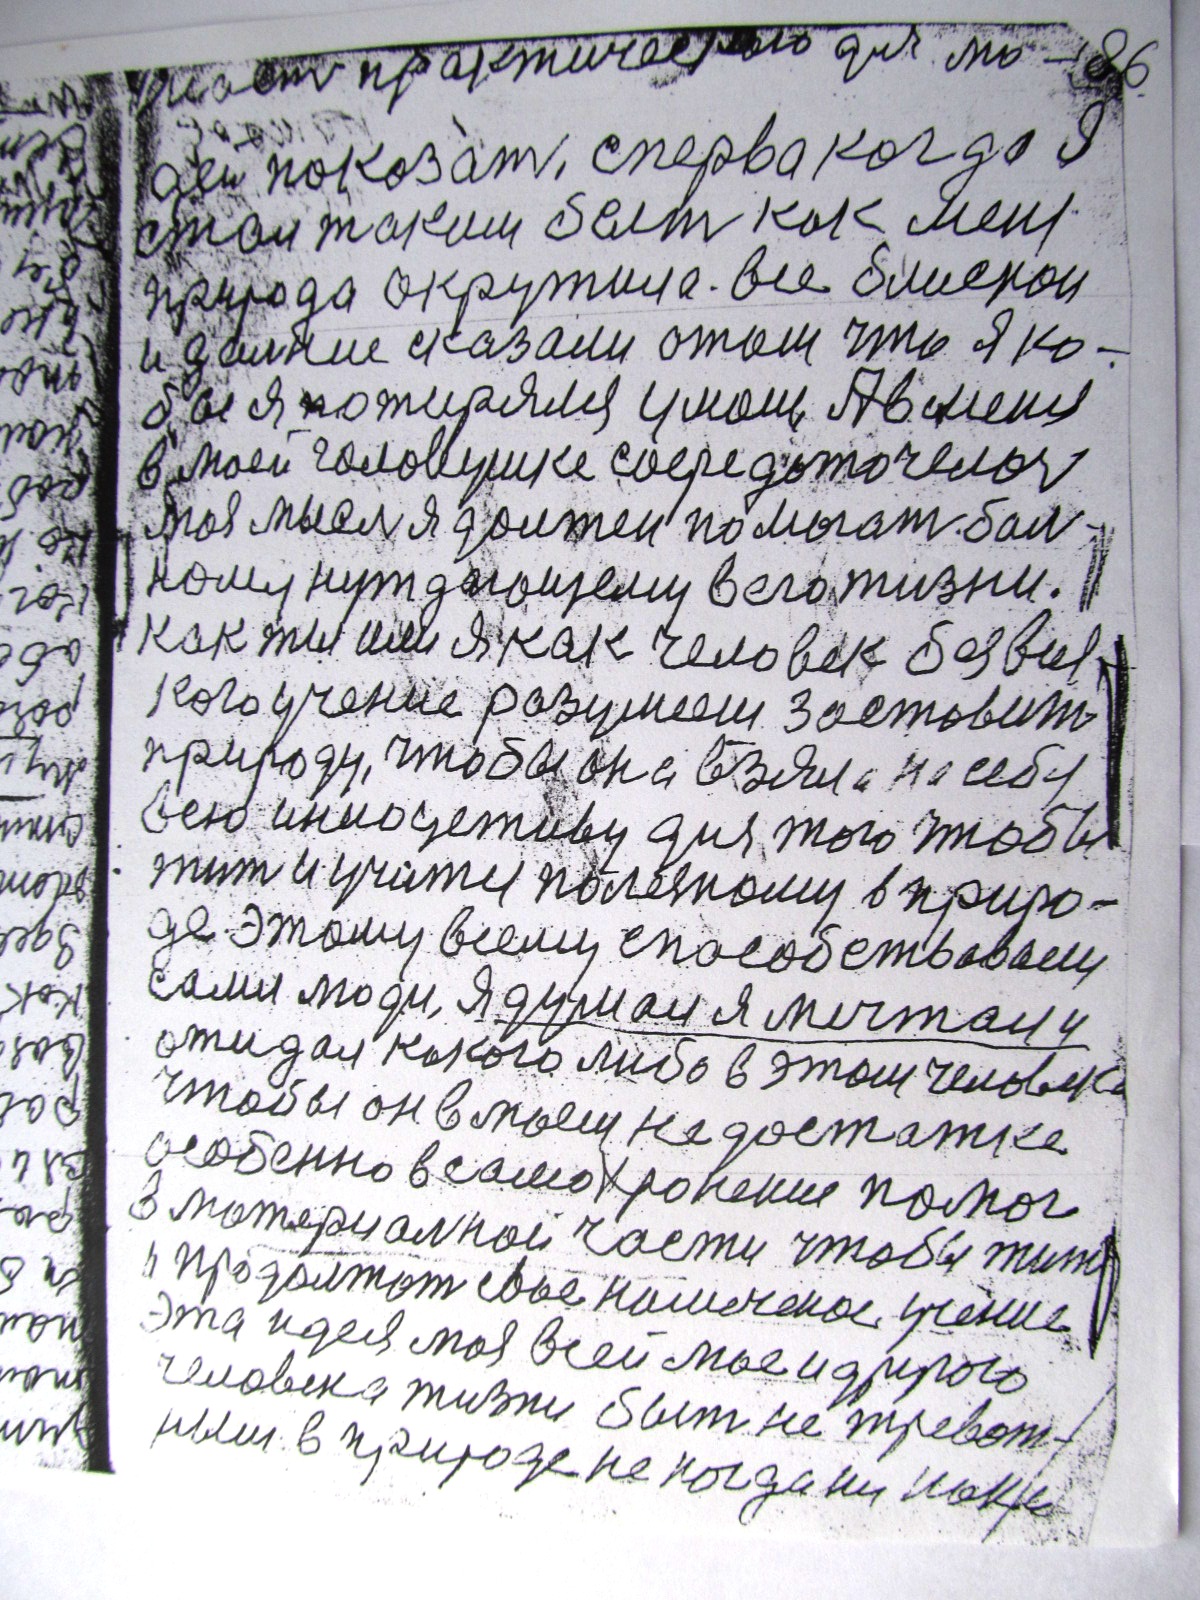 практического для лю- 86
дей показат, сперва когда Я
стал таким белт как меня
природа окружила. все блиской
и далние сказали отом что я ко-
бы я потирялся умом, А в меня
в моей головушке сосредоточелос
моя мысл я должен помогат бол-
ному нуждающему в его жизни.
как ты или я как человек безвся-
кого учение разумеем заставить
природу, чтобы она взяла на себя
всю инициативу для того чтобы
жит и учится полезному в приро-
де этому всему способствовали
сами люди, я думал я мечтал и
ожидал какого либо в этом человека
чтобы он в моем недостатке
особенно в самохронение помог
в материалной части чтобы жить
и продолжат свое намеченое учение
эта идея моя всей мое и другого
человека жизни быт не тревож-
ным в природе не когда ни